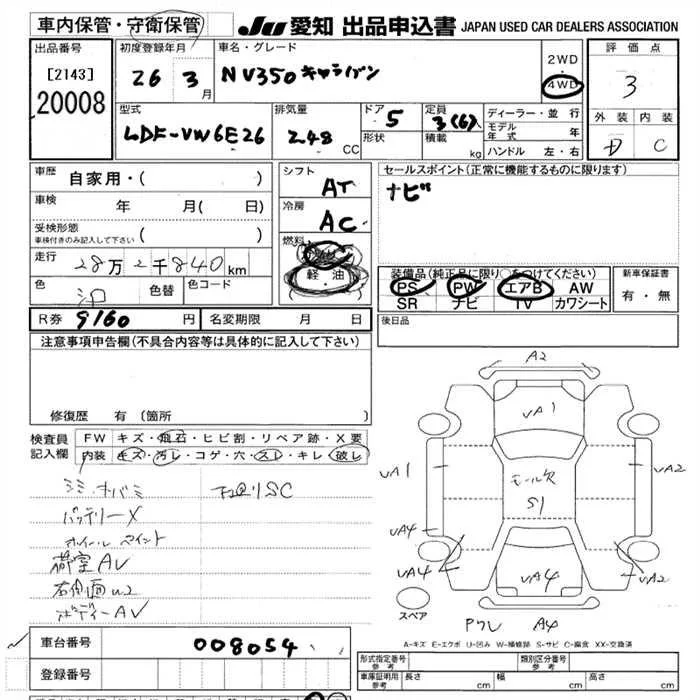 車内保管・守衛保管
JU 愛知 出品申込書 JAPAN USED CAR DEALERS ASSOCIATION
出品番号
[2143]
20008
初度登録年月
26 3月
車名・グレード
NV350キャラバン
2WD
4WD
評価点
3
外装 内装
D C
型式
LDF-VW6E26
排気量
2.48 CC
ドア
5
形状
定員
3(6)
積載 kg
ディーラー・並行
モデル年式 年
ハンドル 左・右
車歴
自家用・( )
車検
年 月( 日)
受検形態
車検付きのみ記入して下さい
( )
走行
28万2千840km
色
シロ
色替
色コード
シフト
AT
冷房
AC
燃料
軽・油
セールスポイント(正常に機能するものに限ります)
ナビ
装備品(純正品に限り○をつけてください)
PS PW エアB AW
SR ナビ TV カワシート
新車保証書
有・無
R券 9160円
名変期限 月 日
後日品
注意事項申告欄(不具合内容等は具体的に記入して下さい)
修復歴 有(箇所 )
検査員記入欄
FW キズ・飛石・ヒビ割・リペア跡・X要
内装 キズ・汚レ・コゲ・穴・スレ・キレ・破レ
バッテリーX
ホイールペイント
荷室AV
右側面U2
ボディーAV
A2
VA1
VA1
VA2
モール欠
S1
VA4
VA4
VA4
VA2
スペア
A4
A-キズ E-エクボ U-凹み W-補修跡 S-サビ C-腐食 XX-交換済
車台番号
008054
登録番号
形式指定番号
参考
類別区分番号
参考
車庫証明用
参考
長さ cm 幅 cm 高さ cm